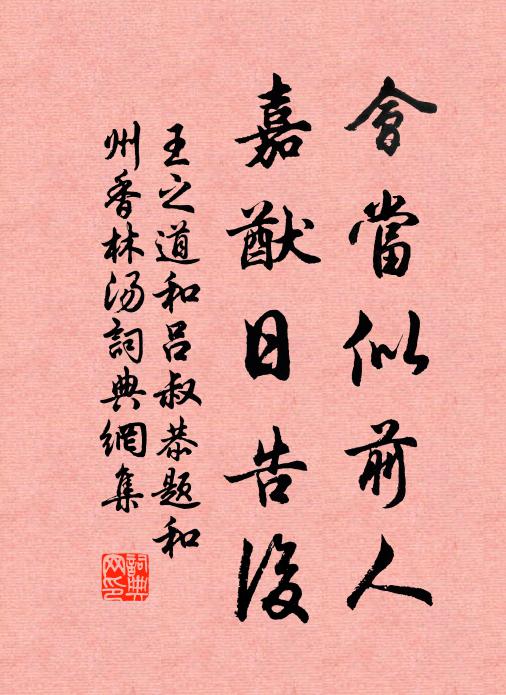 會當似前人
嘉猷日告後
王之道和呂叔恭題和
州香林湯詞典網集
詞典
网印